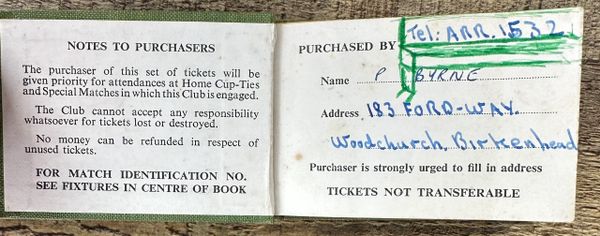 NOTES TO PURCHASERS
The purchaser of this set of tickets will be
given priority for attendances at Home Cup-Ties
and Special Matches in which this Club is engaged.
The Club cannot accept any responsibility
whatsoever for tickets lost or destroyed.
No money can be refunded in respect of
unused tickets.
FOR MATCH IDENTIFICATION NO.
SEE FIXTURES IN CENTRE OF BOOK
Tel: ARR. 1532
PURCHASED BY
Name P BYRNE
Address 183 FORD-WAY.
Woodchurch, Birkenhead
Purchaser is strongly urged to fill in address
TICKETS NOT TRANSFERABLE